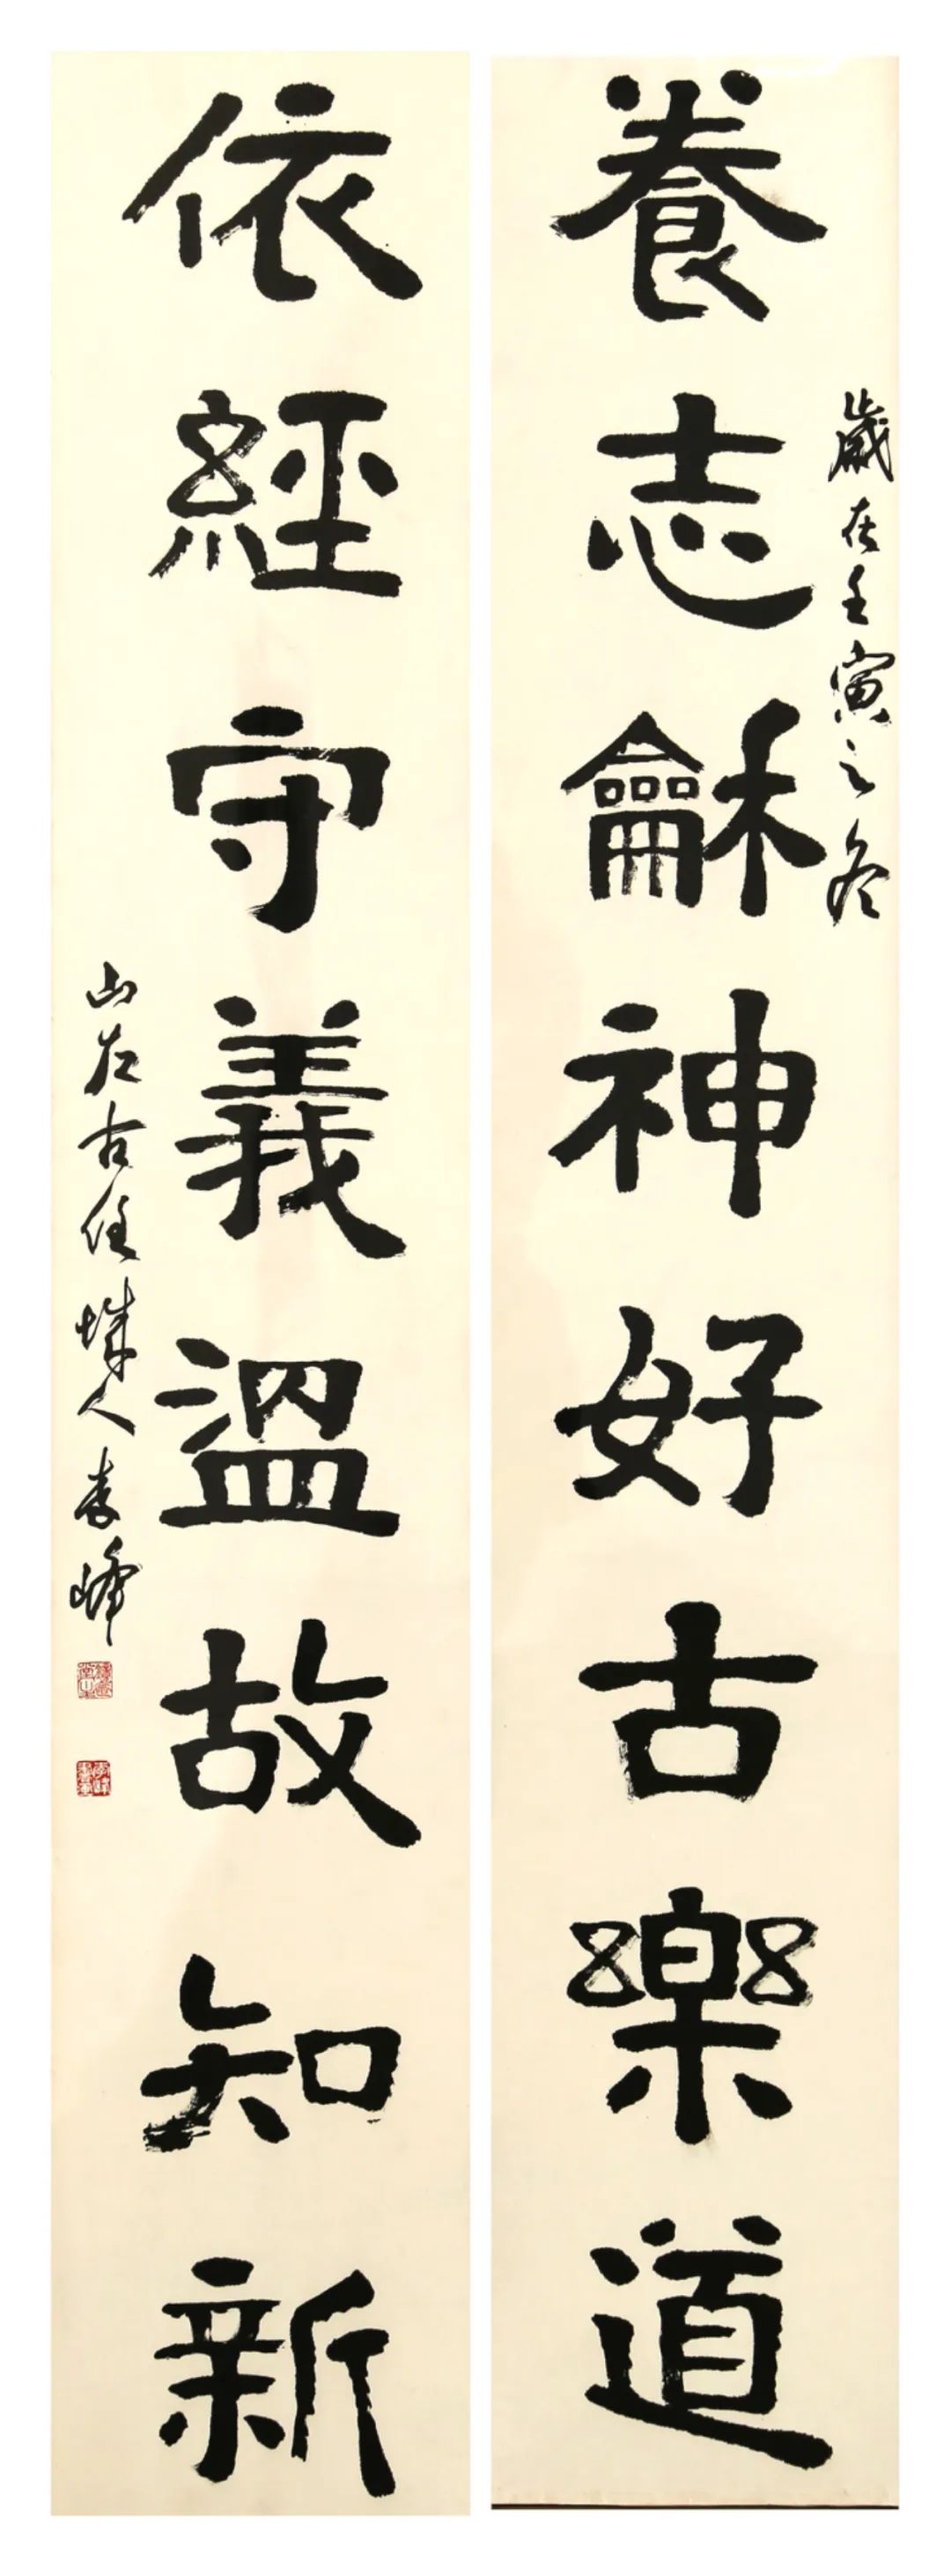 養志龢神好古樂道
歲在壬寅之冬
依經守義溫故知新
山左古任城人李峰